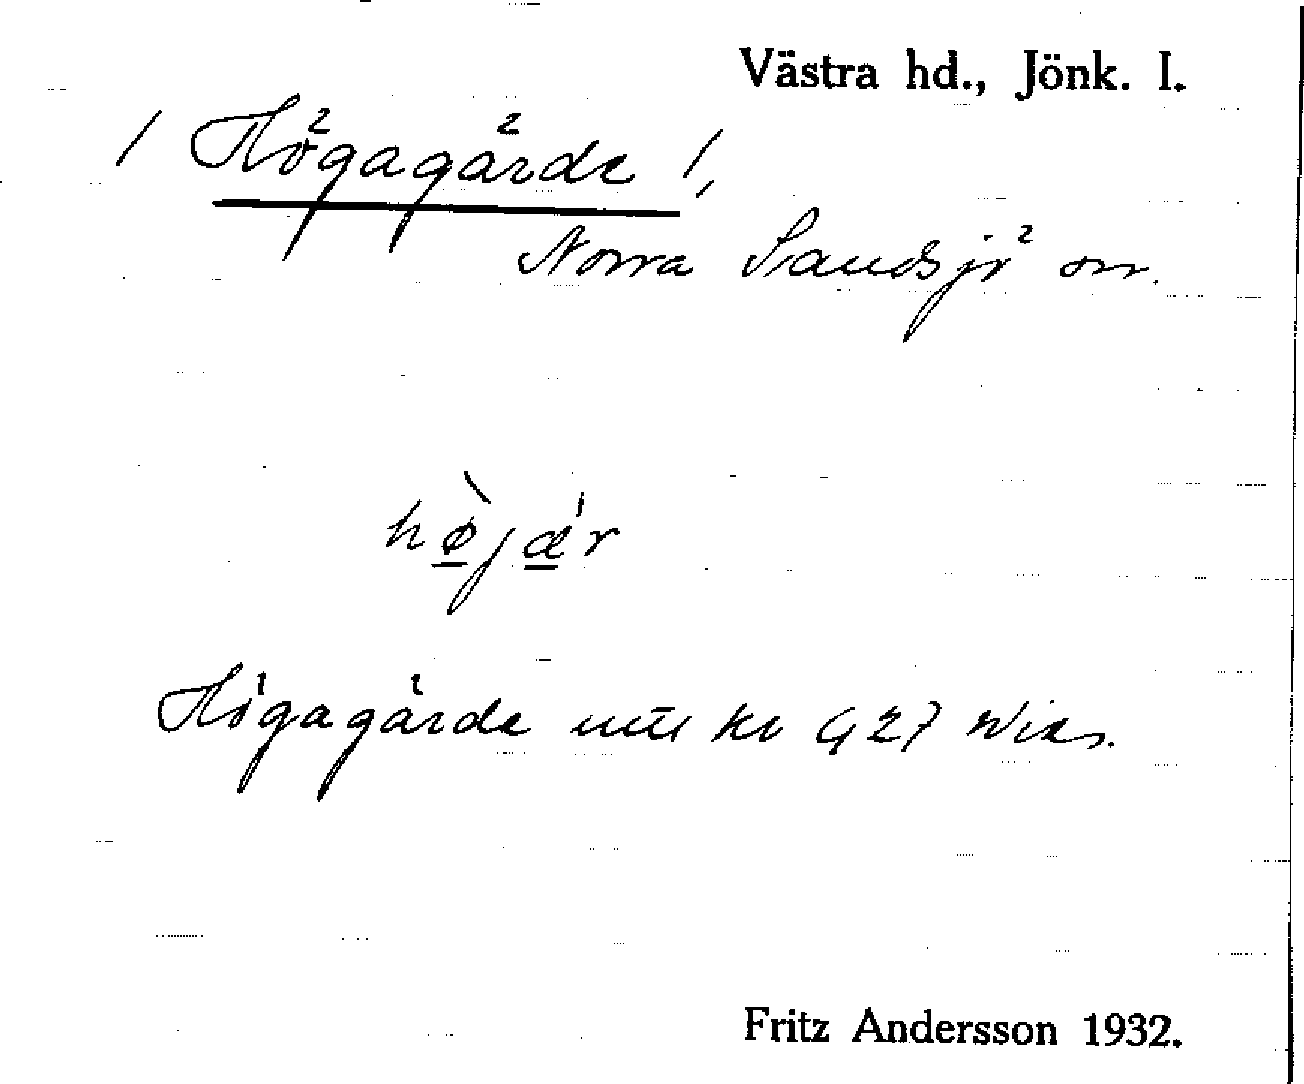 Västra hd., Jönk. l.
/ Högagärde /,
Norra Sandsjö sn.
hø̀jæ'r
Högagärde
Fritz Andersson 1932.